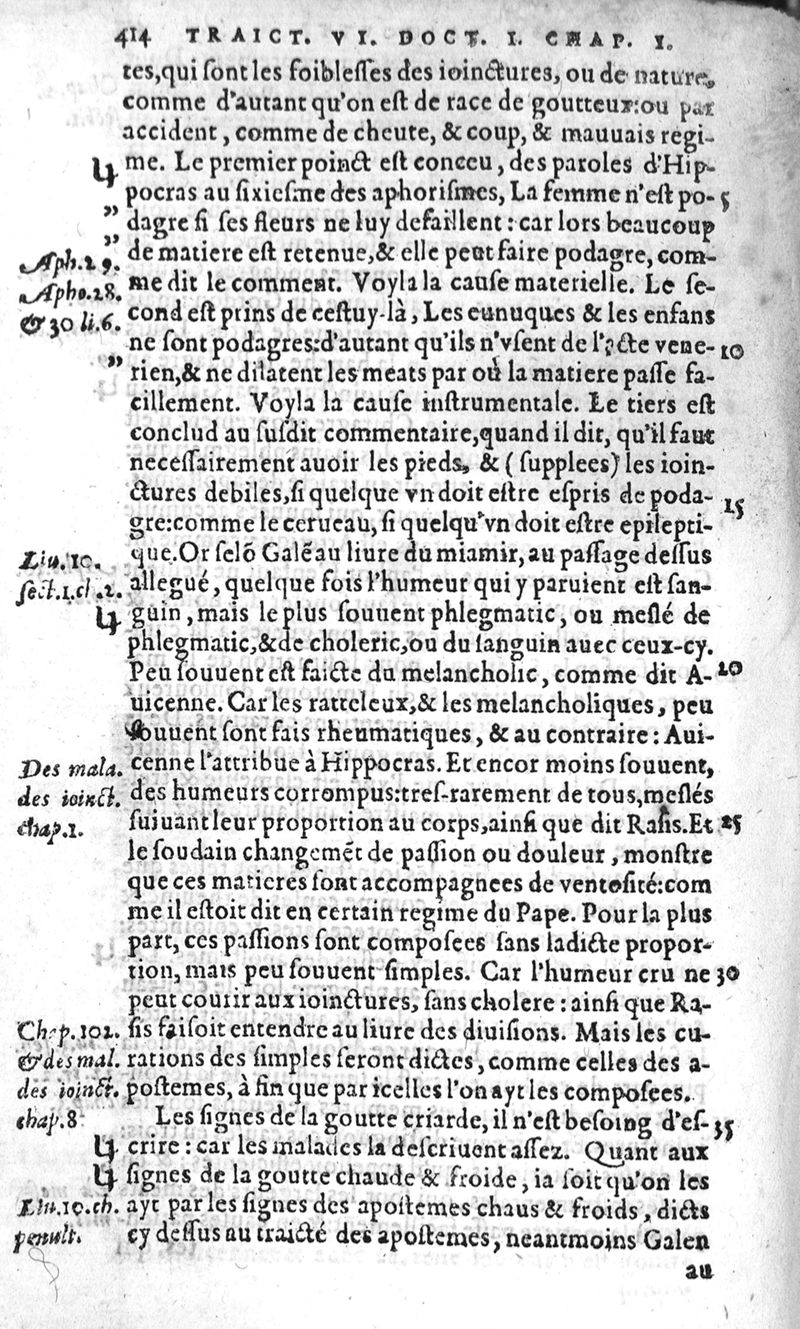 414 TRAICT. VI. DOCT. I. CHAP. I.
tes,qui ſont les foibleſſes des ioinctures, ou de nature,
comme d'autant qu'on eſt de race de goutteux:ou par
accident, comme de cheute, & coup, & mauuais regi-
me. Le premier poinct eſt conceu, des paroles d'Hip-
pocras au ſixieſme des aphoriſmes, La femme n'eſt po- 5
” dagre ſi ſes fleurs ne luy defaillent : car lors beaucoup
” Aph.29. de matiere eſt retenue,& elle peut faire podagre, com-
Apho.28. me dit le comment. Voyla la cauſe materielle. Le ſe-
& 30 li.6. cond eſt prins de ceſtuy-là, Les eunuques & les enfans
ne ſont podagres:d'autant qu'ils n'vſent de l'acte vene- 10
” rien,& ne dilatent les meats par où la matiere paſſe fa-
cillement. Voyla la cauſe inſtrumentale. Le tiers eſt
conclud au ſuſdit commentaire,quand il dit, qu'il faut
neceſſairement auoir les pieds, & (ſupplees) les ioin-
ctures debiles,ſi quelque vn doit eſtre eſpris de poda- 15
gre:comme le cerueau, ſi quelqu'vn doit eſtre epilepti-
Liu.10. que.Or ſelõ Galẽ au liure du miamir, au paſſage deſſus
ſect.1.cl.2. allegué, quelque fois l'humeur qui y paruient eſt ſan-
guin, mais le plus ſouuent phlegmatic, ou meſlé de
phlegmatic,& de choleric,ou du ſanguin auec ceux-cy.
Peu ſouuent eſt faicte du melancholic, comme dit A- 20
uicenne. Car les ratteleux,& les melancholiques, peu
ſouuent ſont fais rheumatiques, & au contraire : Aui-
Des mala. cenne l'attribue à Hippocras. Et encor moins ſouuent,
des ioinct. des humeurs corrompus:treſ-rarement de tous,meſlés
chap.1. ſuiuant leur proportion au corps,ainſi que dit Raſis.Et 25
le ſoudain changemẽt de paſſion ou douleur, monſtre
que ces matieres ſont accompagnees de ventoſité:com
me il eſtoit dit en certain regime du Pape. Pour la plus
part, ces paſſions ſont compoſees ſans ladicte propor-
tion, mais peu ſouuent ſimples. Car l'humeur cru ne 30
peut courir aux ioinctures, ſans cholere : ainſi que Ra-
Chap.102. ſis faiſoit entendre au liure des diuiſions. Mais les cu-
& des mal. rations des ſimples ſeront dictes, comme celles des a-
des ioinct. poſtemes, à fin que par icelles l'on ayt les compoſees.
chap.8 Les ſignes de la goutte criarde, il n'eſt beſoing d'eſ- 35
crire : car les malades la deſcriuent aſſez. Quant aux
ſignes de la goutte chaude & froide, ia ſoit qu'on les
Liu.10.ch. ayt par les ſignes des apoſtemes chaus & froids, dicts
penult. cy deſſus au traicté des apoſtemes, neantmoins Galen
au